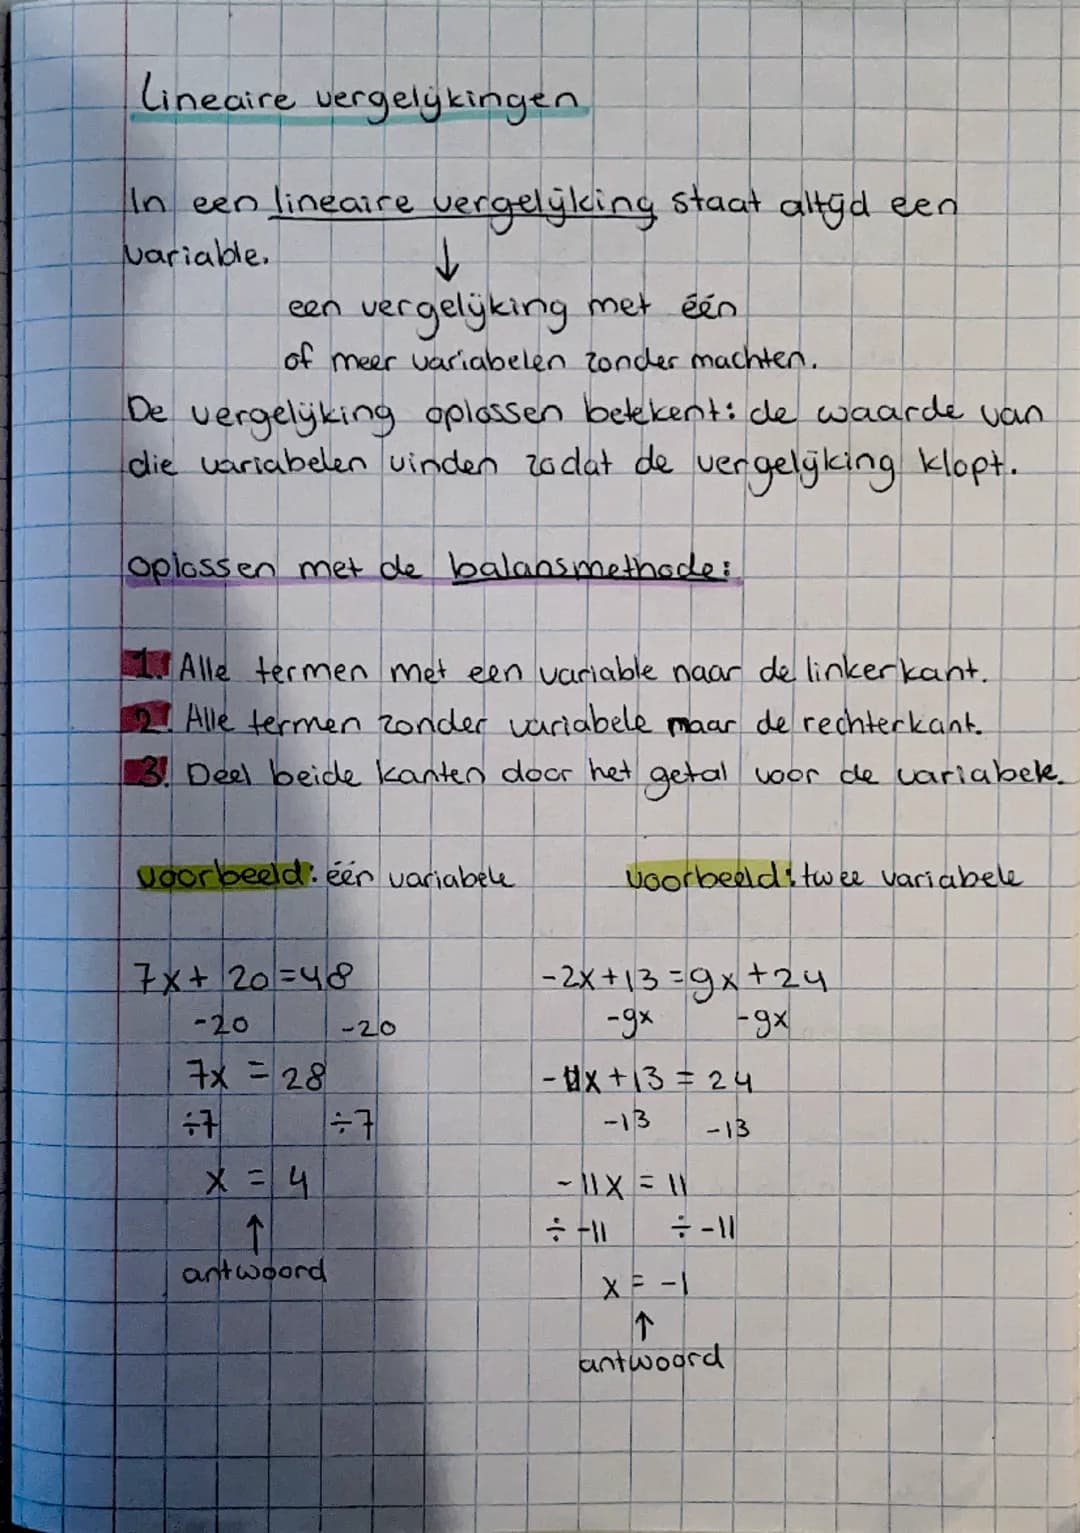 Lineaire vergelijkingen
In een lineaire vergelijking staat altijd een
variable.
↓
een vergelijking met één
of meer variabelen zonder machten.
De vergelijking oplossen betekent: de waarde van
die variabelen vinden zodat de vergelijking klopt.
oplossen met de balansmethode:
1. Alle termen met een variable naar de linkerkant.
2. Alle termen zonder variabele naar de rechterkant.
3. Deel beide kanten door het getal voor de variabele.
voorbeeld: één variabele
7x + 20 = 48
-20 -20
7x = 28
÷7 ÷7
x = 4
↑
antwoord
voorbeeld: twee variabele
-2x + 13 = 9x + 24
-9x -9x
-11x + 13 = 24
-13 -13
-11x = 11
÷ -11 ÷ -11
x = -1
↑
antwoord